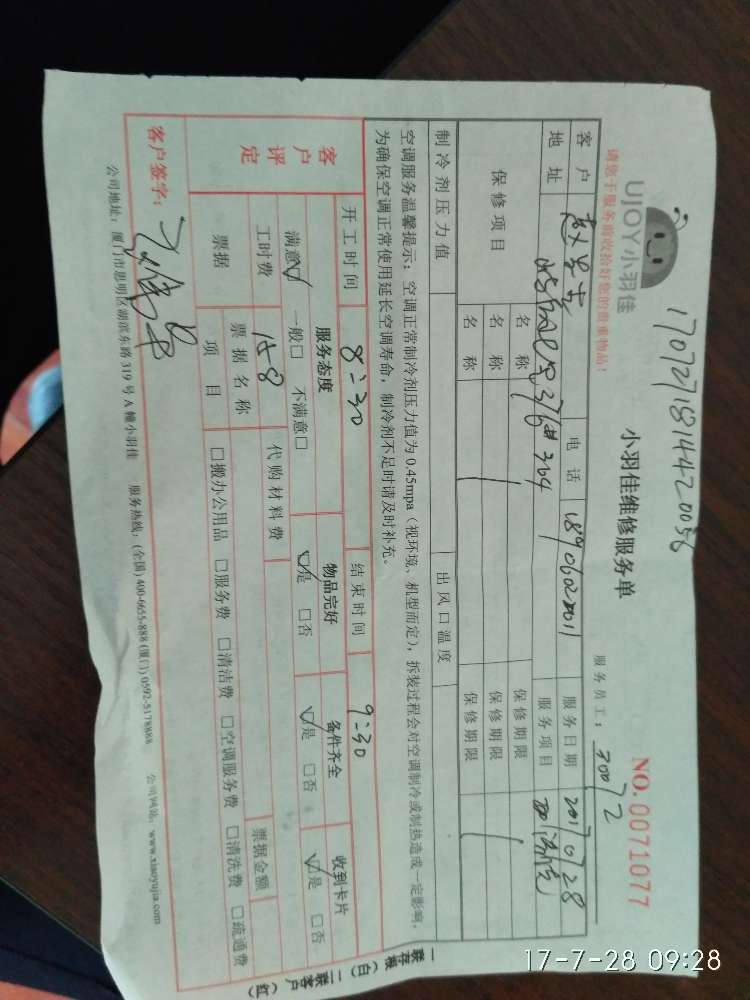 17072718144420056
UJOY小羽佳
请您于服务前收拾好您的贵重物品!
小羽佳维修服务单
NO.0071077
服务员工:30072
客户
电话 18906020011
服务日期 20170728
地址 376#304
服务项目
保修项目 名称 保修期限
名称 保修期限
名称 保修期限
制冷剂压力值 出风口温度
空调服务温馨提示:空调正常制冷剂压力值为0.45mpa(视环境、机型而定),拆装过程会对空调制冷或制热造成一定影响,
为确保空调正常使用延长空调寿命,制冷剂不足时请及时补充。
开工时间 8:30 结束时间 9:30
客户评定 服务态度 物品完好 备件齐全 收到卡片
满意☑ 一般□ 不满意□ ☑是 □否 ☑是 □否 ☑是 □否
工时费 158 代购材料费 票据金额
票据 票据名称
项目 □搬办公用品 □服务费 □清洁费 □空调服务费 □清洗费 □疏通费
客户签字:
公司地址:厦门市思明区湖滨东路319号A幢小羽佳 服务热线:(全国)400-6655-888(厦门)0592-5178888 公司网站:www.xiaoyujia.com
一联存根(白)二联客户(红)
17-7-28 09:28